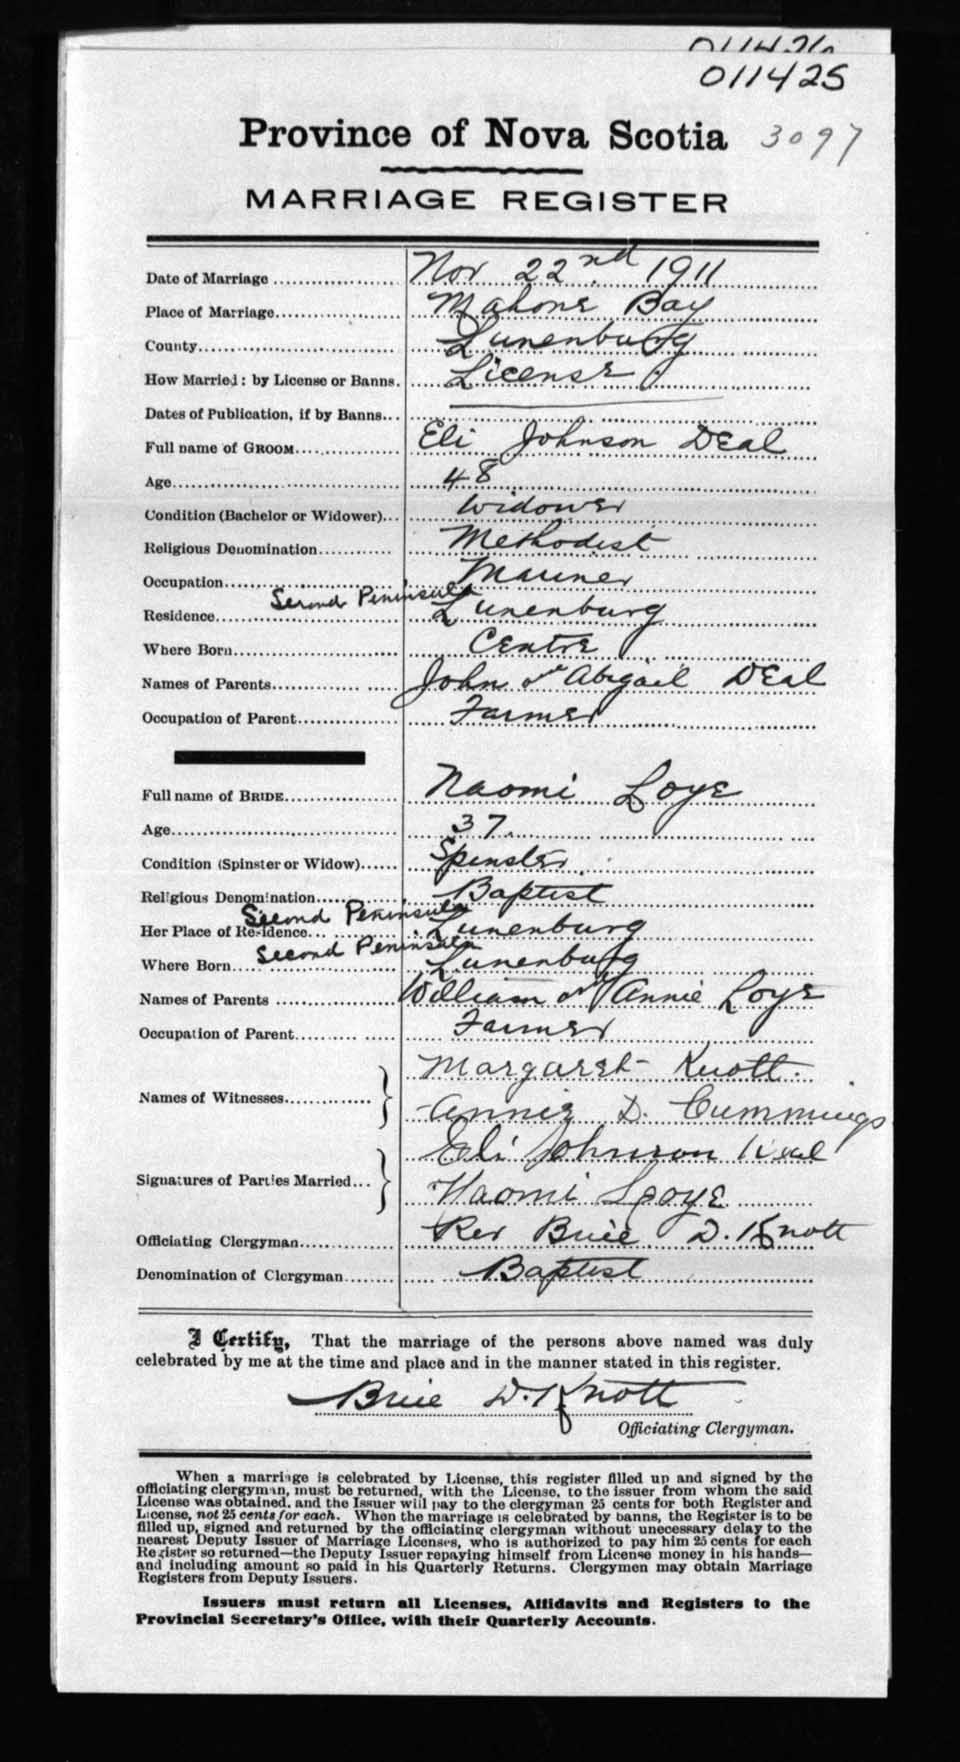 011426
011425
Province of Nova Scotia 3097
MARRIAGE REGISTER
Date of Marriage Nov 22nd. 1911
Place of Marriage Mahone Bay
County Lunenburg
How Married: by License or Banns. License
Dates of Publication, if by Banns
Full name of GROOM Eli Johnson DEal
Age 48
Condition (Bachelor or Widower) Widower
Religious Denomination Methodist
Occupation Mariner
Residence Second Peninsula Lunenburg
Where Born Centre
Names of Parents John & Abigail DEal
Occupation of Parent Farmer
Full name of BRIDE Naomi Loye
Age 37
Condition (Spinster or Widow) Spinster
Religious Denomination Baptist
Her Place of Residence Second Peninsula Lunenburg
Where Born Second Peninsula Lunenburg
Names of Parents William & Annie Loye
Occupation of Parent Farmer
Margaret Knott.
Names of Witnesses
Annie D. Cummings
Eli Johnson Deal
Signatures of Parties Married
Naomi Loye
Officiating Clergyman Rev Brice D. Knott
Denomination of Clergyman Baptist
I Certify, That the marriage of the persons above named was duly
celebrated by me at the time and place and in the manner stated in this register.
Brice D. Knott
Officiating Clergyman.
When a marriage is celebrated by License, this register filled up and signed by the
officiating clergyman, must be returned, with the License, to the issuer from whom the said
License was obtained, and the Issuer will pay to the clergyman 25 cents for both Register and
License, not 25 cents for each. When the marriage is celebrated by banns, the Register is to be
filled up, signed and returned by the officiating clergyman without unnecessary delay to the
nearest Deputy Issuer of Marriage Licenses, who is authorized to pay him 25 cents for each
Register so returned—the Deputy Issuer repaying himself from License money in his hands—
and including amount so paid in his Quarterly Returns. Clergymen may obtain Marriage
Registers from Deputy Issuers.
Issuers must return all Licenses, Affidavits and Registers to the
Provincial Secretary's Office, with their Quarterly Accounts.